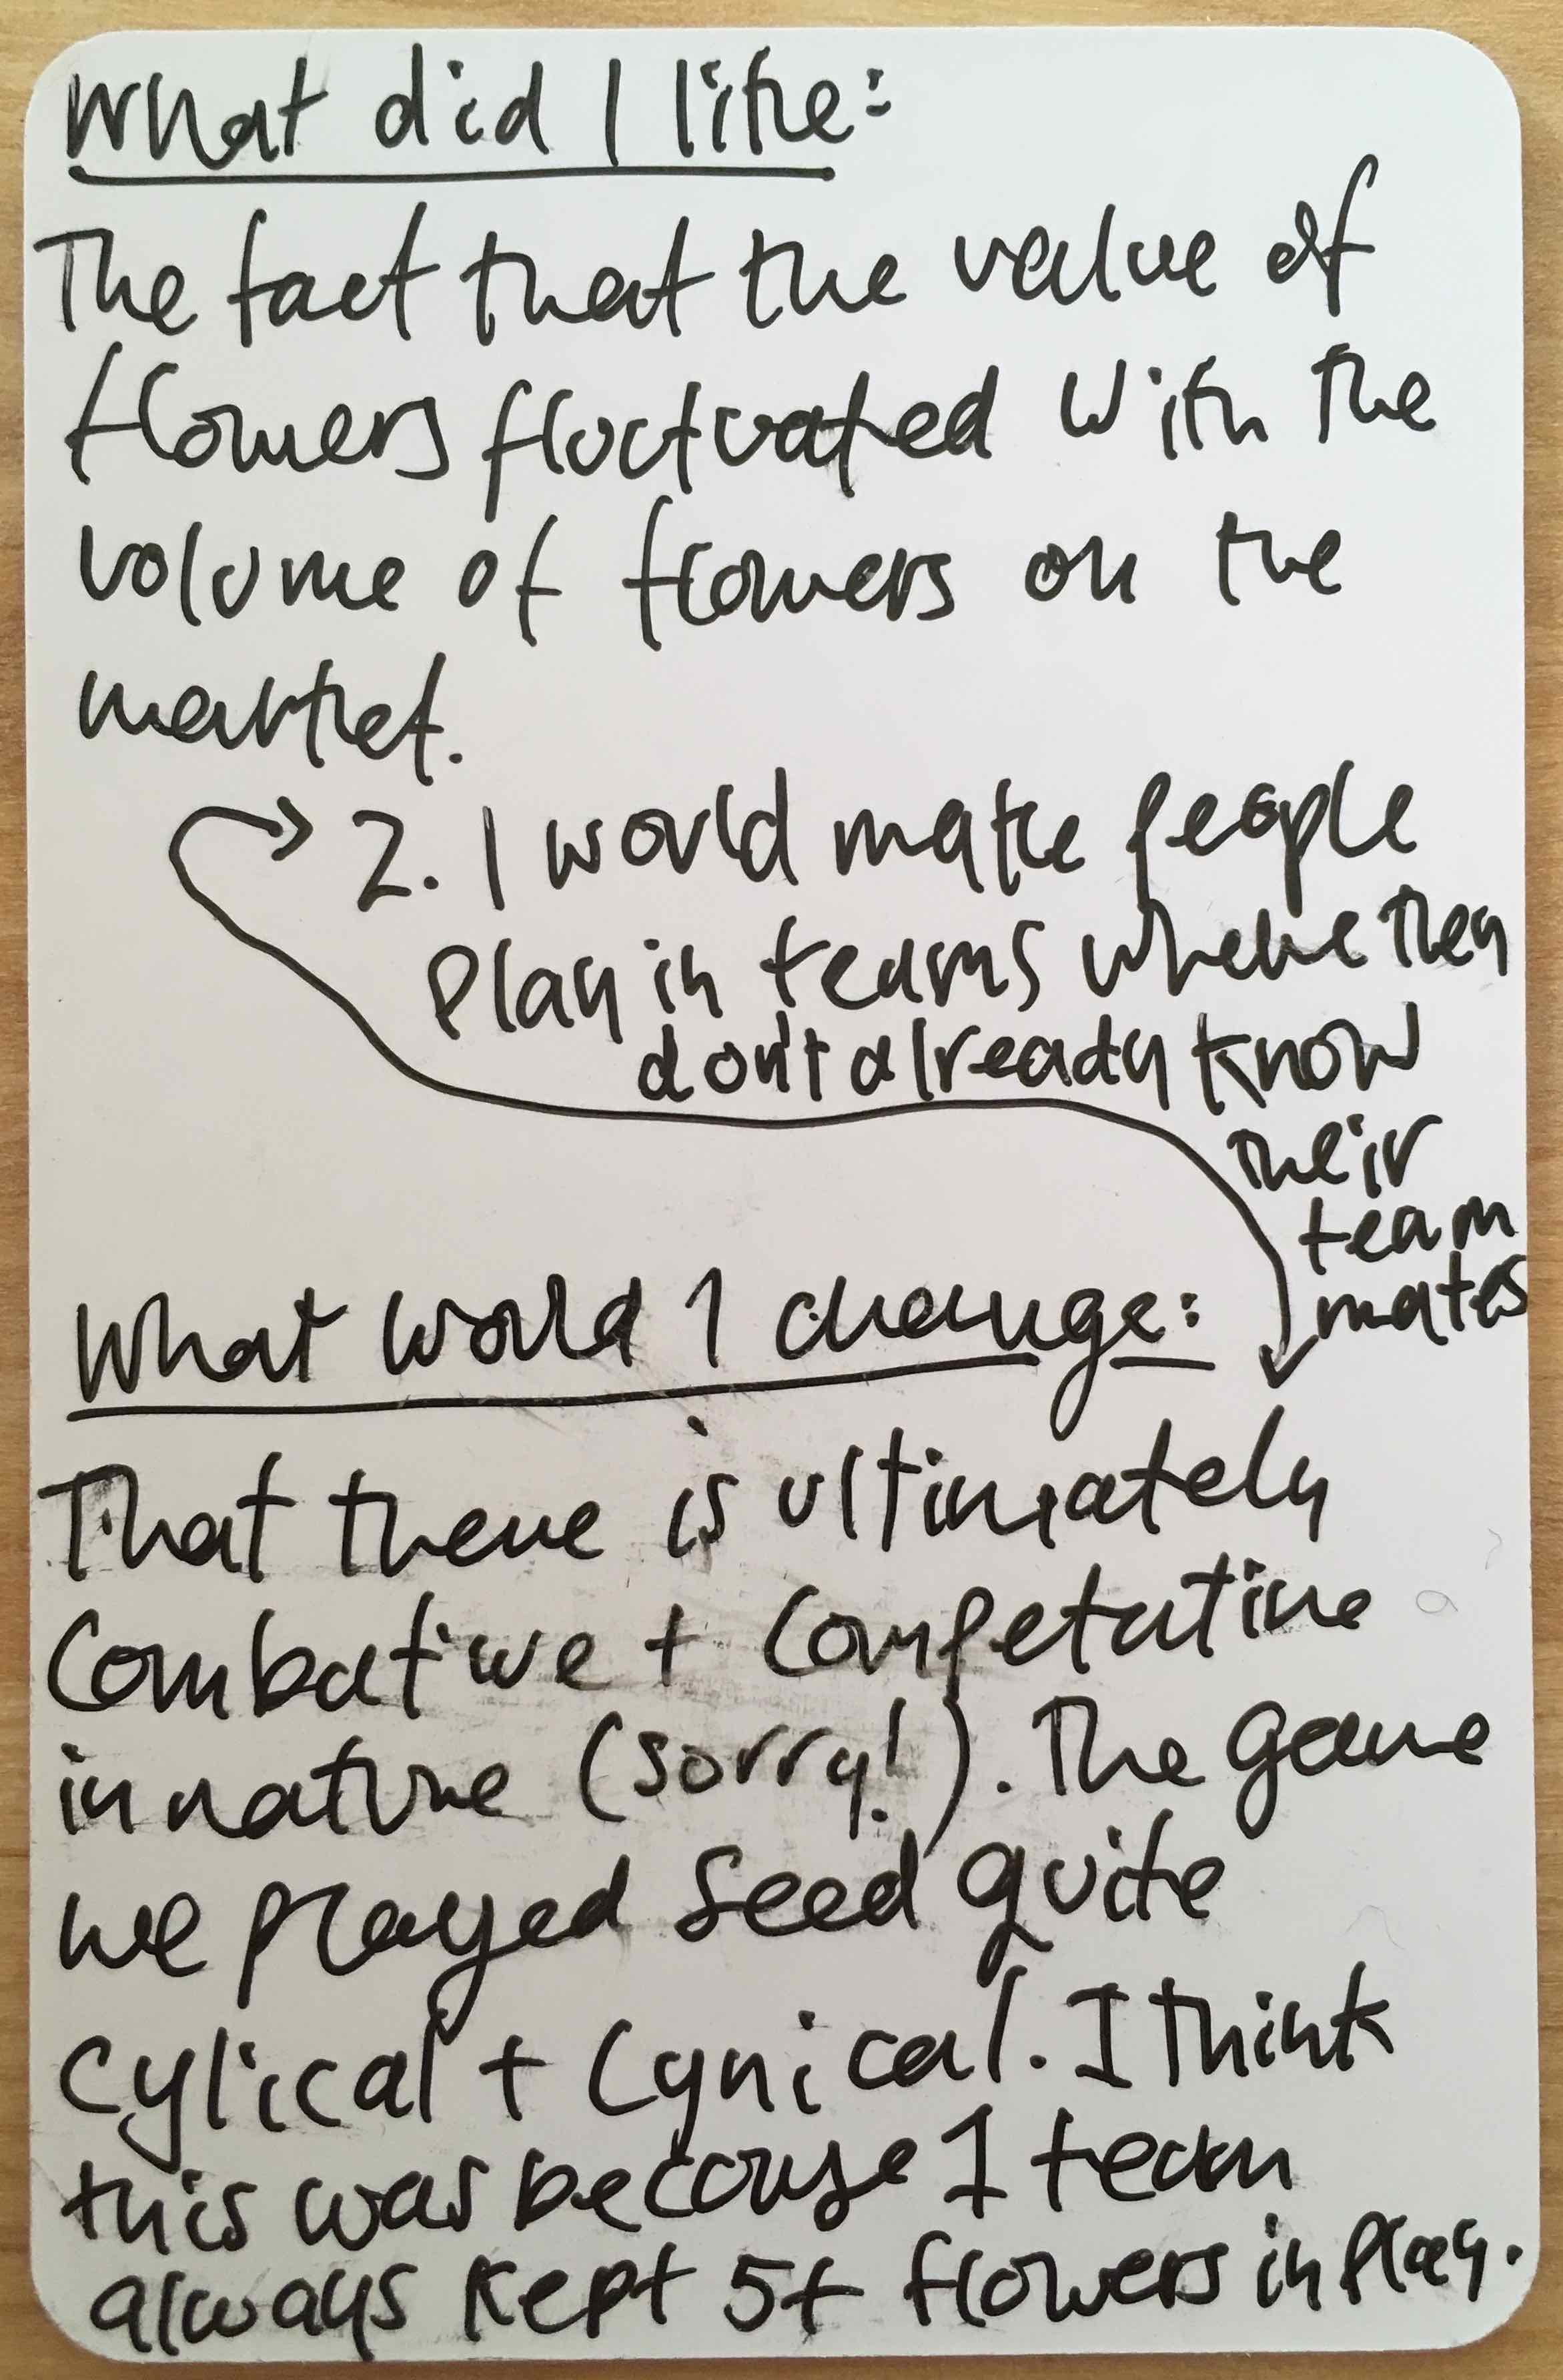 What did I like:
The fact that the value of
flowers fluctuated with the
volume of flowers on the
market.
2. I would make people
play in teams where they
don't already know
their
team
mates
What would I change:
That there is ultimately
Combative + Competative
in nature (sorry!). The game
we played seed quite
Cylical + Cynical. I think
this was because 1 team
always kept 5+ flowers in play.